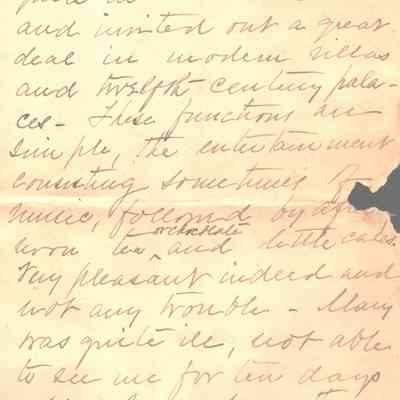 and invited out a great
deal in modern villas
and twelfth century pala-
ces - These functions are
simple, the entertainment
consisting sometimes of
music, followed by
or chocolate
noon tea, and little cakes.
Very pleasant indeed and
not any trouble - Mary
was quite ill, not able
to see me for ten days